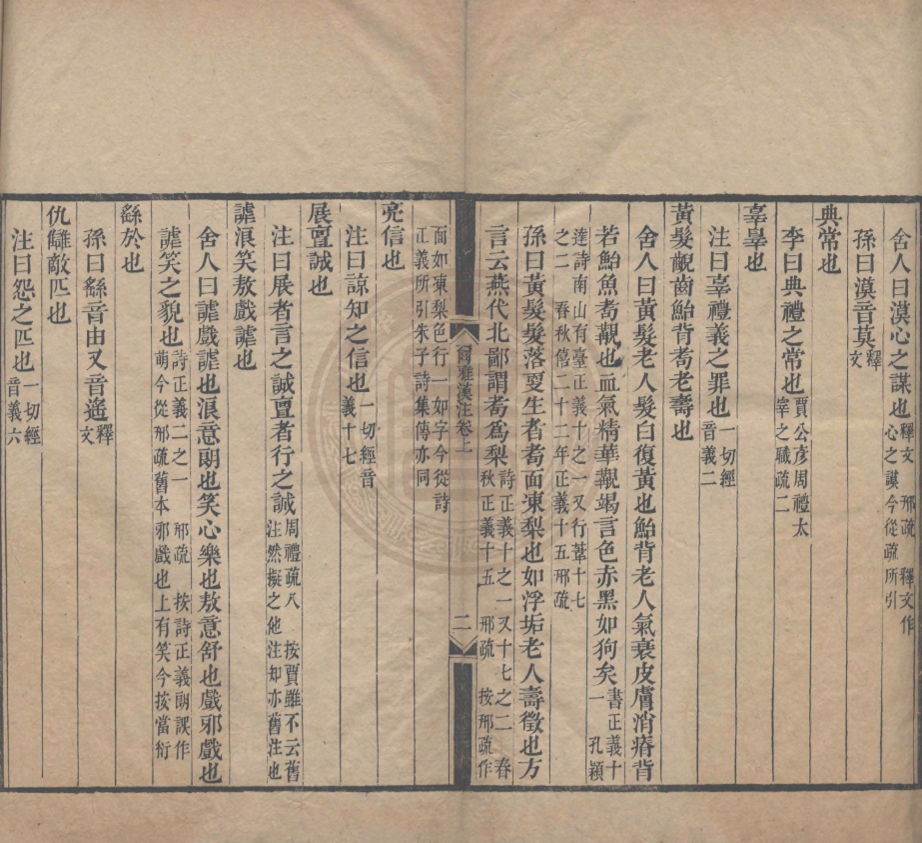 舍人曰漠心之謀也釋文 邢疏 釋文作心之謨今從疏所引
孫曰漠音莫釋文
典常也
李曰典禮之常也賈公彥周禮太宰之職疏二
辜辠也
注曰辜禮義之罪也一切經音義二
黃髮齯齒鮐背耇老壽也
舍人曰黃髮老人髮白復黃也鮐背老人氣衰皮膚消瘠背
若鮐魚耇覯也血氣精華覯竭言色赤黑如狗矣書正義十一 孔穎
達詩南山有臺正義十之一又行葦十七之二 春秋僖二十二年正義十五邢疏
孫曰黃髮髮落更生者耇面凍梨也如浮垢老人壽徵也方
言云燕代北鄙謂耇爲梨詩正義十之一又十七之二 春秋正義十五 邢疏 按邢疏作
面如凍梨色行一如字今從詩正義所引朱子詩集傳亦同
爾雅漢注卷上 二
亮信也
注曰諒知之信也一切經音義十七
展亶誠也
注曰展者言之誠亶者行之誠周禮疏八 按賈雖不云舊注然擬之他注却亦舊注也
謔浪笑敖戲謔也
舍人曰謔戲謔也浪意朗也笑心樂也敖意舒也戲邪戲也
謔笑之貌也詩正義二之一 邢疏 按詩正義朗誤作萌今從邢疏舊本邪戲也上有笑今按當衍
繇於也
孫曰繇音由又音遙釋文
仇讎敵匹也
注曰怨之匹也一切經音義六